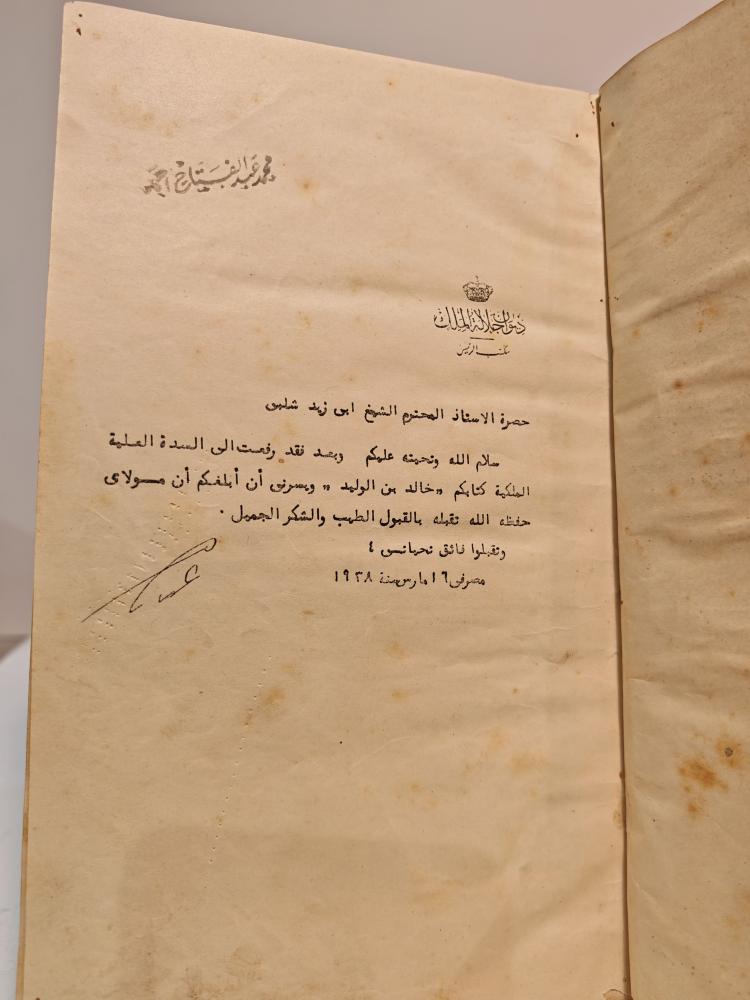 محمد عبد الفتاح احمد
ديوان جلالة الملك
مكتب الرئيس
حضرة الاستاذ المحترم الشيخ ابى زيد شلبى
سلام الله وتحيته عليكم وبعد فقد رفعت الى السدة العلية
الملكية كتابكم „خالد بن الوليد„ ويسرنى أن أبلغكم أن مولاى
حفظه الله تقبله بالقبول الطيب والشكر الجميل .
وتقبلوا فائق تحياتى ؛
مصر فى ١٦ مارس سنة ١٩٣٨